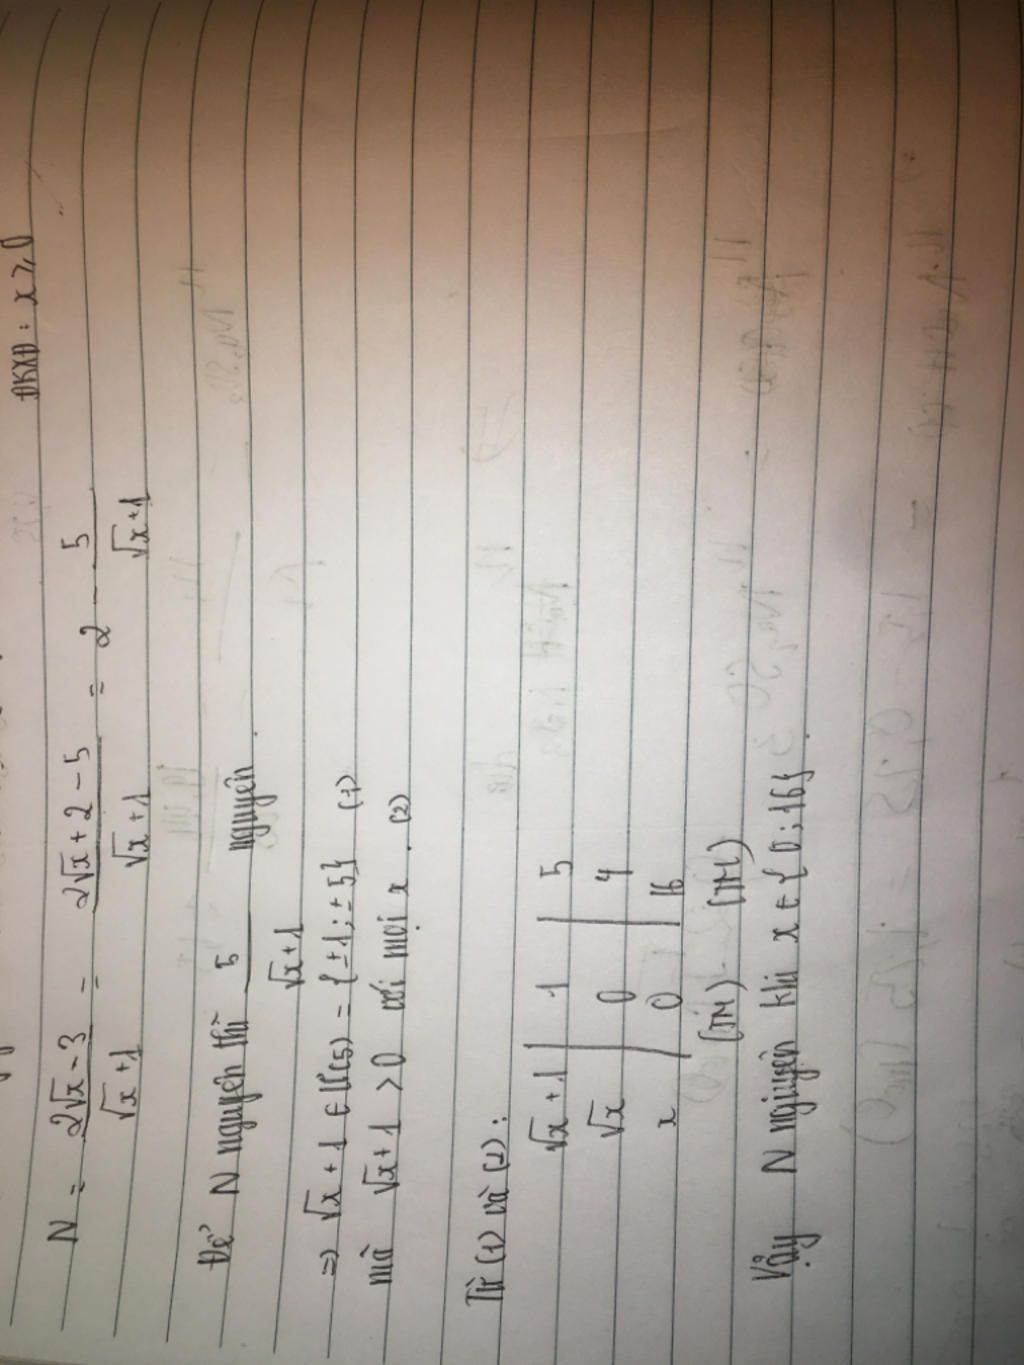 ĐKXĐ: x ≥ 0
N = (2√x - 3)/(√x + 1) = (2√x + 2 - 5)/(√x + 1) = 2 - 5/(√x + 1)
Để N nguyên thì 5/(√x + 1) nguyên.
=> √x + 1 ∈ Ư(5) = {±1; ±5} (1)
mà √x + 1 > 0 với mọi x. (2)
Từ (1) và (2):
√x + 1 | 1 | 5
√x | 0 | 4
x | 0 | 16
(TM) (TM)
Vậy N nguyên khi x ∈ {0; 16}.